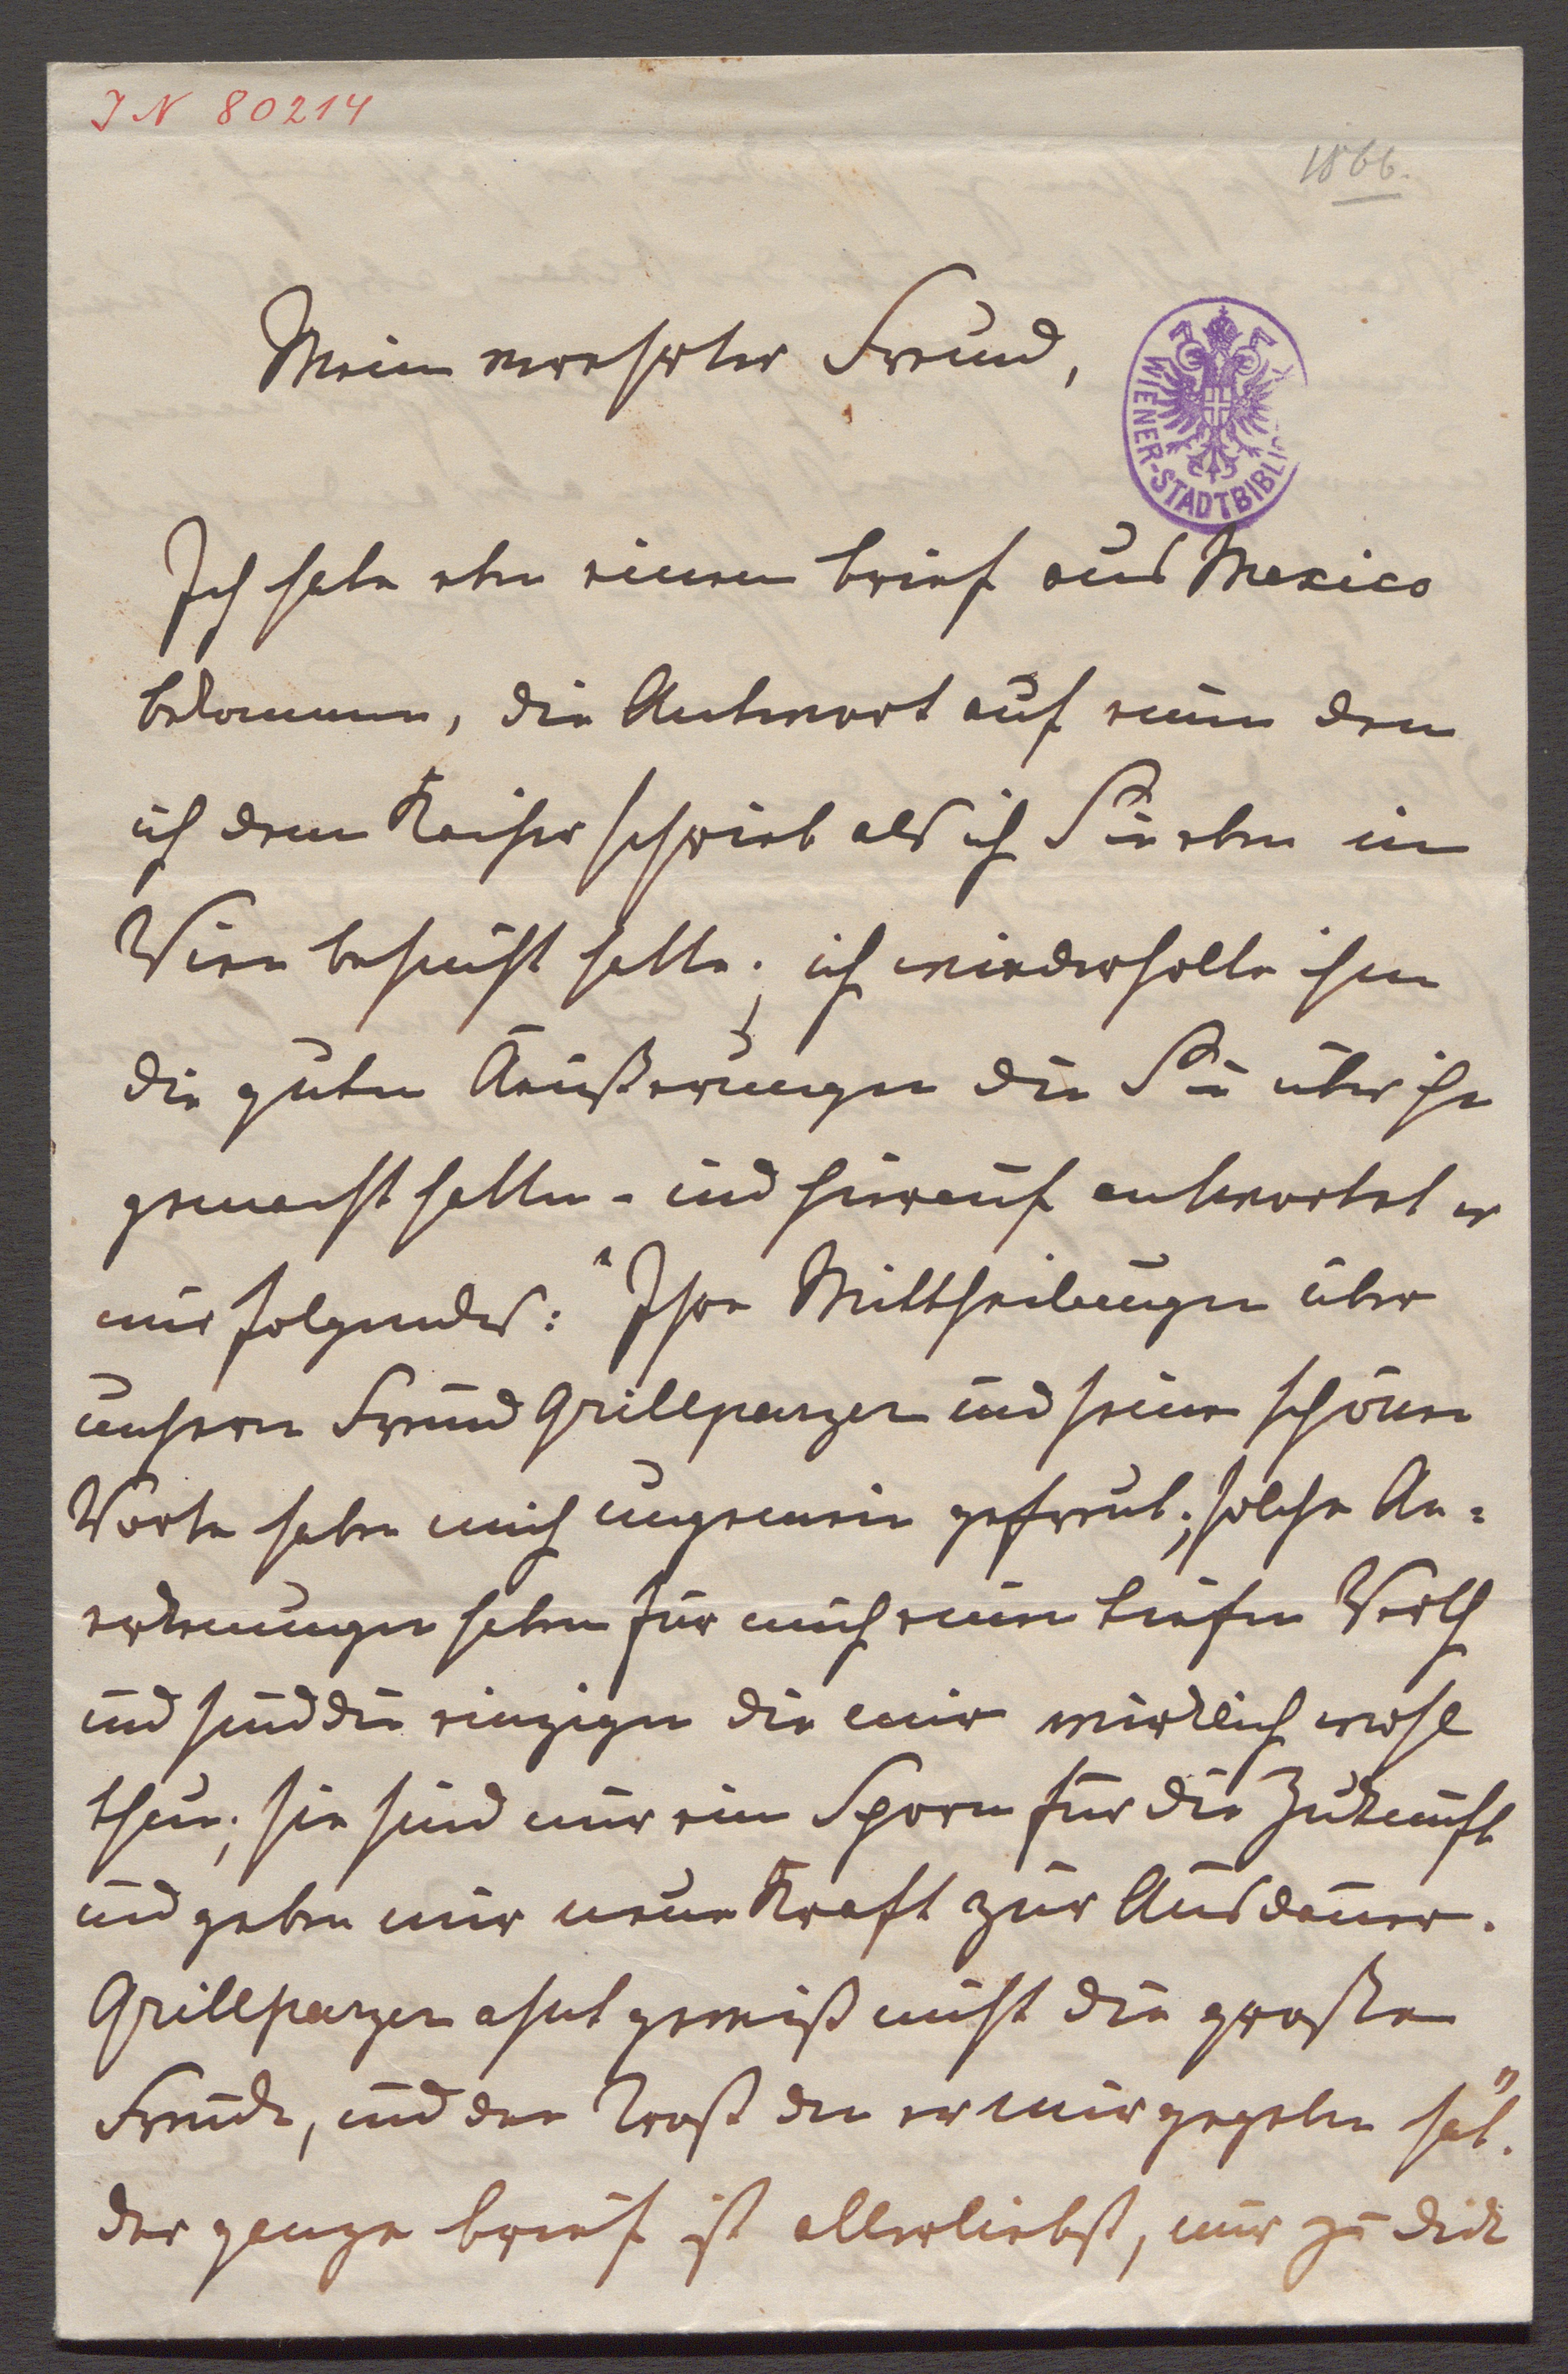 IN 80214
1866.
Mein verehrter Freund,
WIENER-STADTBIBLI
Ich habe eben einen Brief aus Mexico
bekommen, die Antwort auf einen den
ich dem Kaiser schrieb als ich Sie eben in
Wien besucht hatte; ich wiederholte ihm
die guten Äeußerungen die Sie über ihn
gemacht hatten - und hierauf antwortet er
mir folgendes: "Ihre Mittheilungen über
unseren Freund Grillparzer und seine schönen
Worte haben mich ungemein gefreut; solche An=
erkennungen haben für mich einen tiefen Werth
und sind die einzigen die mir wirklich wohl
thun; sie sind mir ein Sporn für die Zukunft
und geben mir neue Kraft zur Ausdauer.
Grillparzer ahnt gewiß nicht die große
Freude, und den Trost den er mir gegeben hat."
Der ganze Brief ist allerliebst, nur zu dick